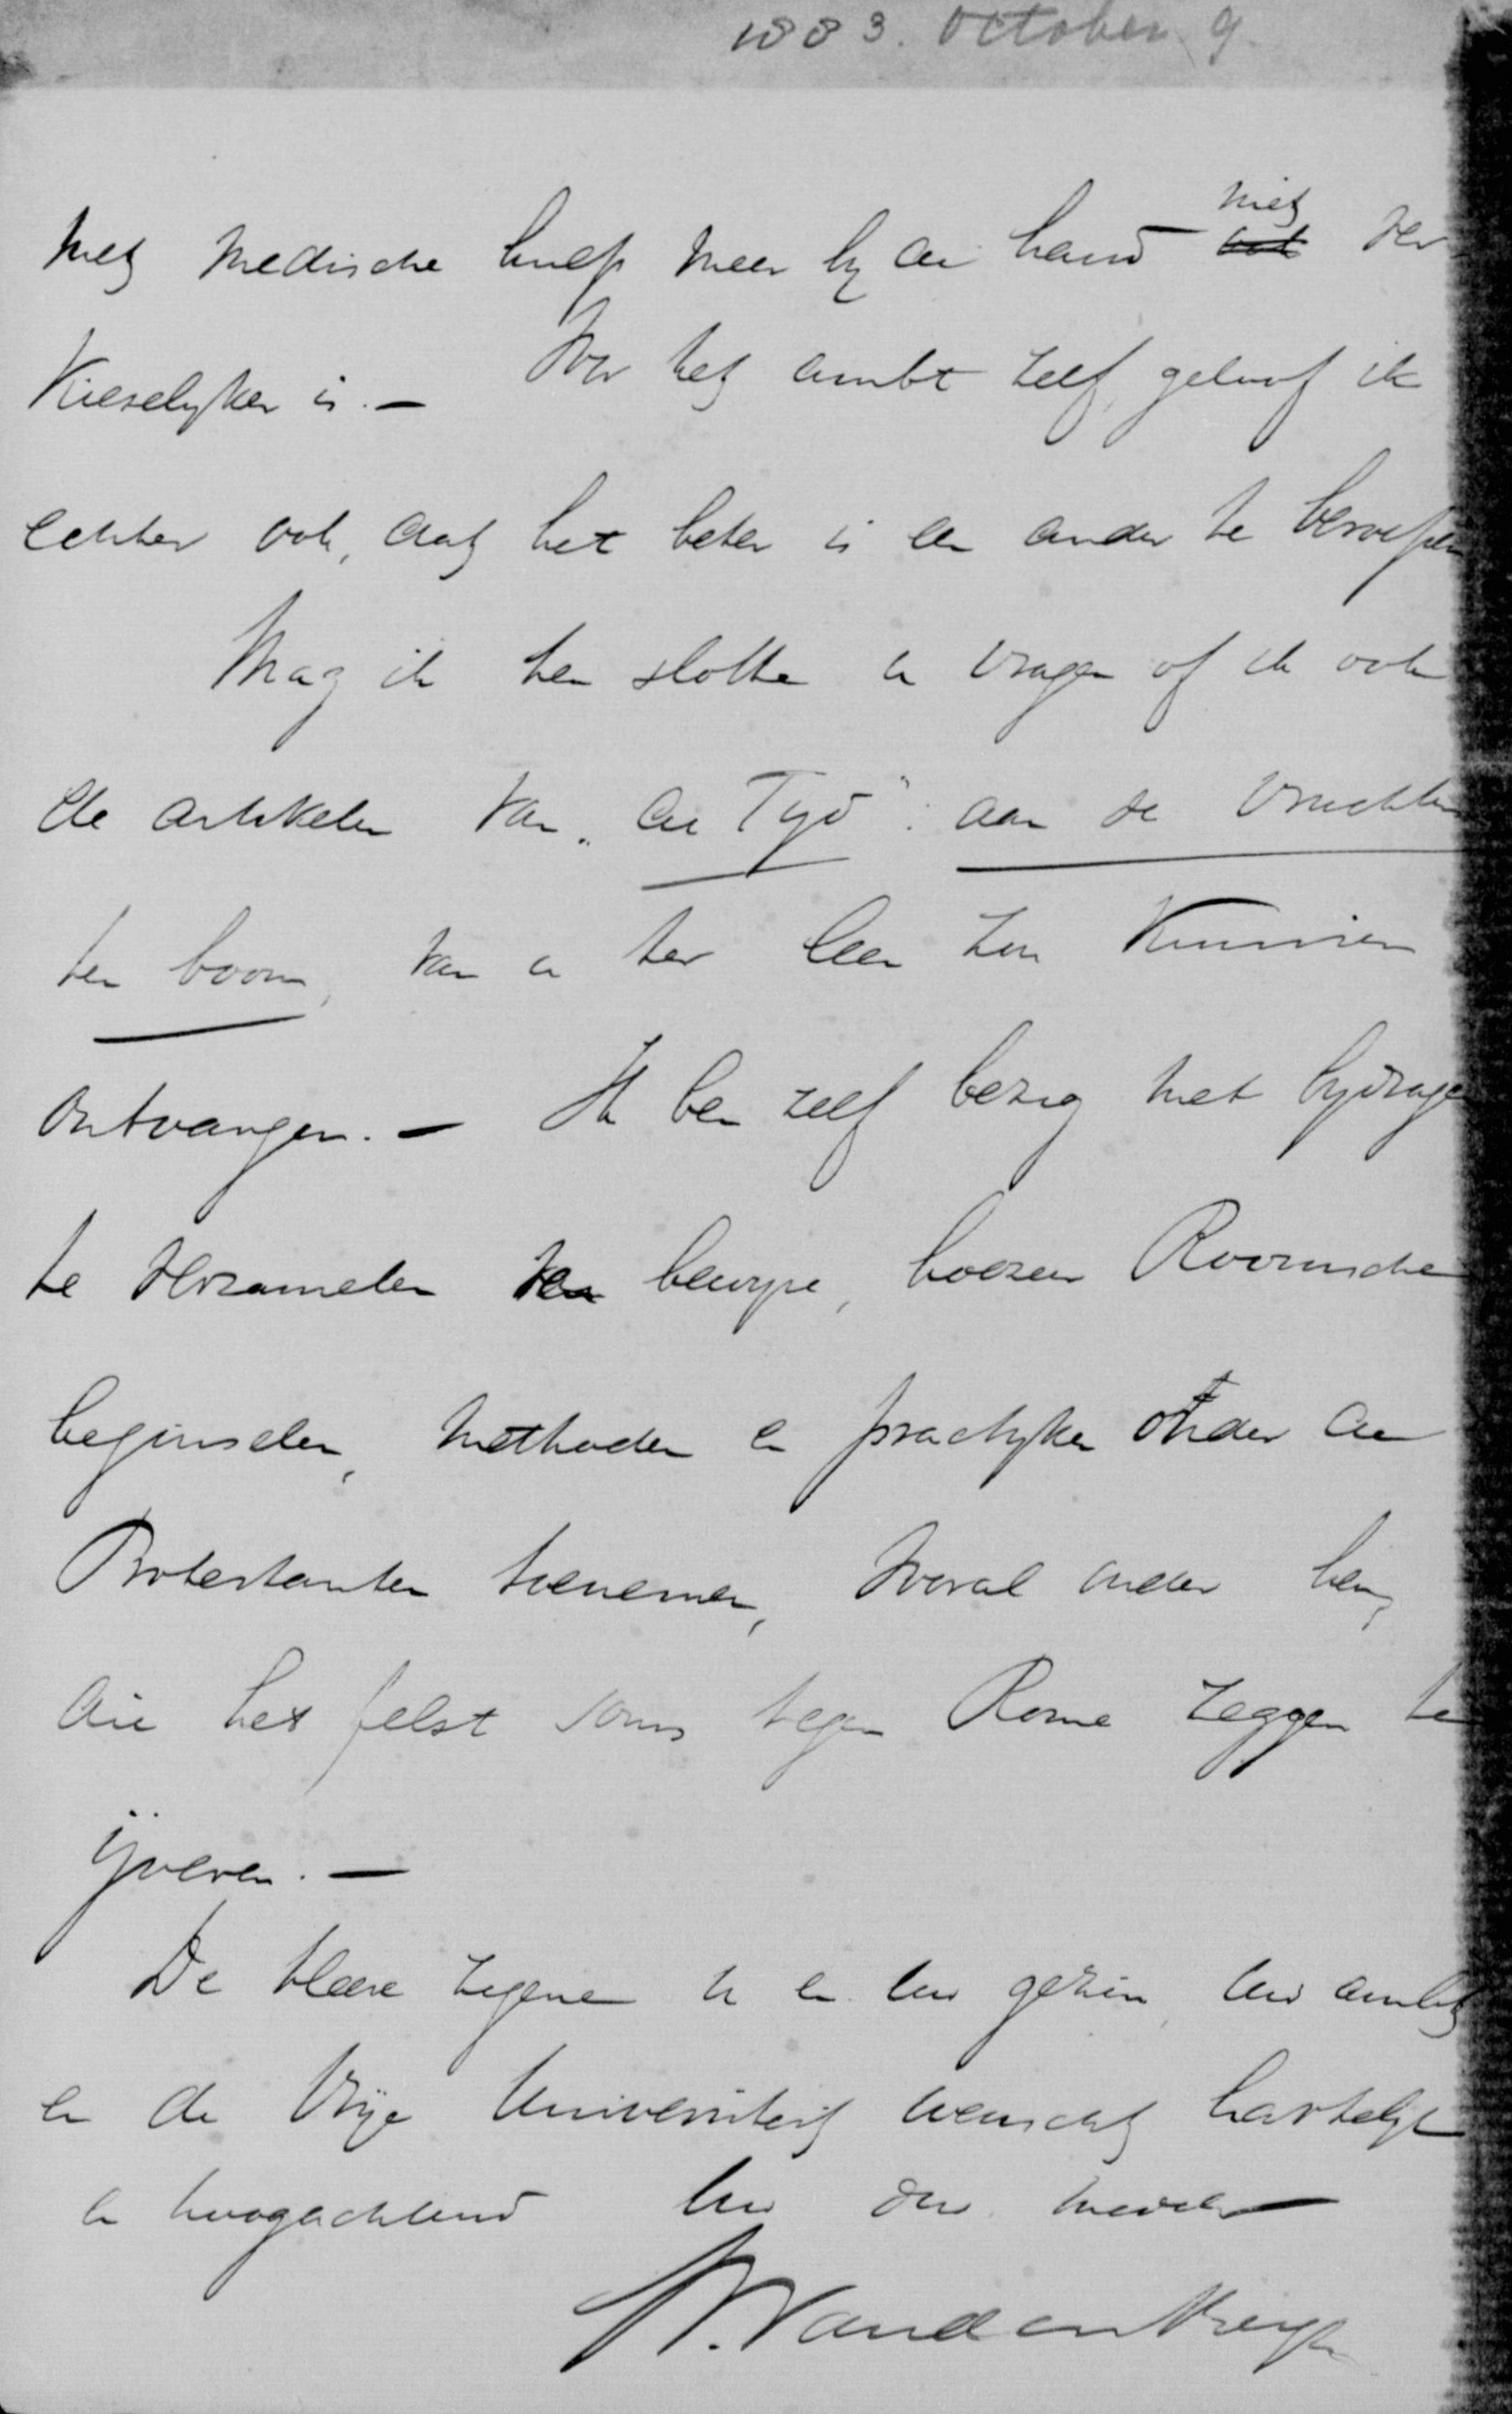 1883. October 9.
met medische hulp meer by de hand niet ver
kieselyker is. — Voor het ambt zelf, geloof ik
echter ook, dat het beter is een ander te beroepen
Mag ik ten slotte u vragen of ik ook
de artikelen van „de Tyd": aan de vruchten
den boom, van u ter leen zou kunnen
ontvangen. — Ik ben zelf bezig met bydrage
te verzamelen ten bewyze, hoezeer Roomsche
beginselen, methoden en practyken onder de
Protestanten toenemen, vooral onder hen,
die het felst soms tegen Rome zeggen te
ijveren. —
De Heere zegene u en uw gezin, uw ambt
en de Vrije Universiteit wenscht hartelyk
en hoogachtend Uw dw. broeder
W. van den Bergh